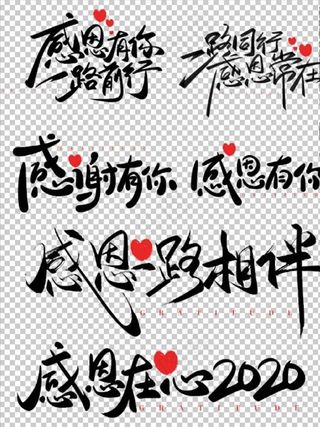 感恩有你
一路前行
一路同行
感恩常在
感谢有你
感恩有你
感恩一路相伴
GRATITUDE
感恩在心2020
GRATITUDE